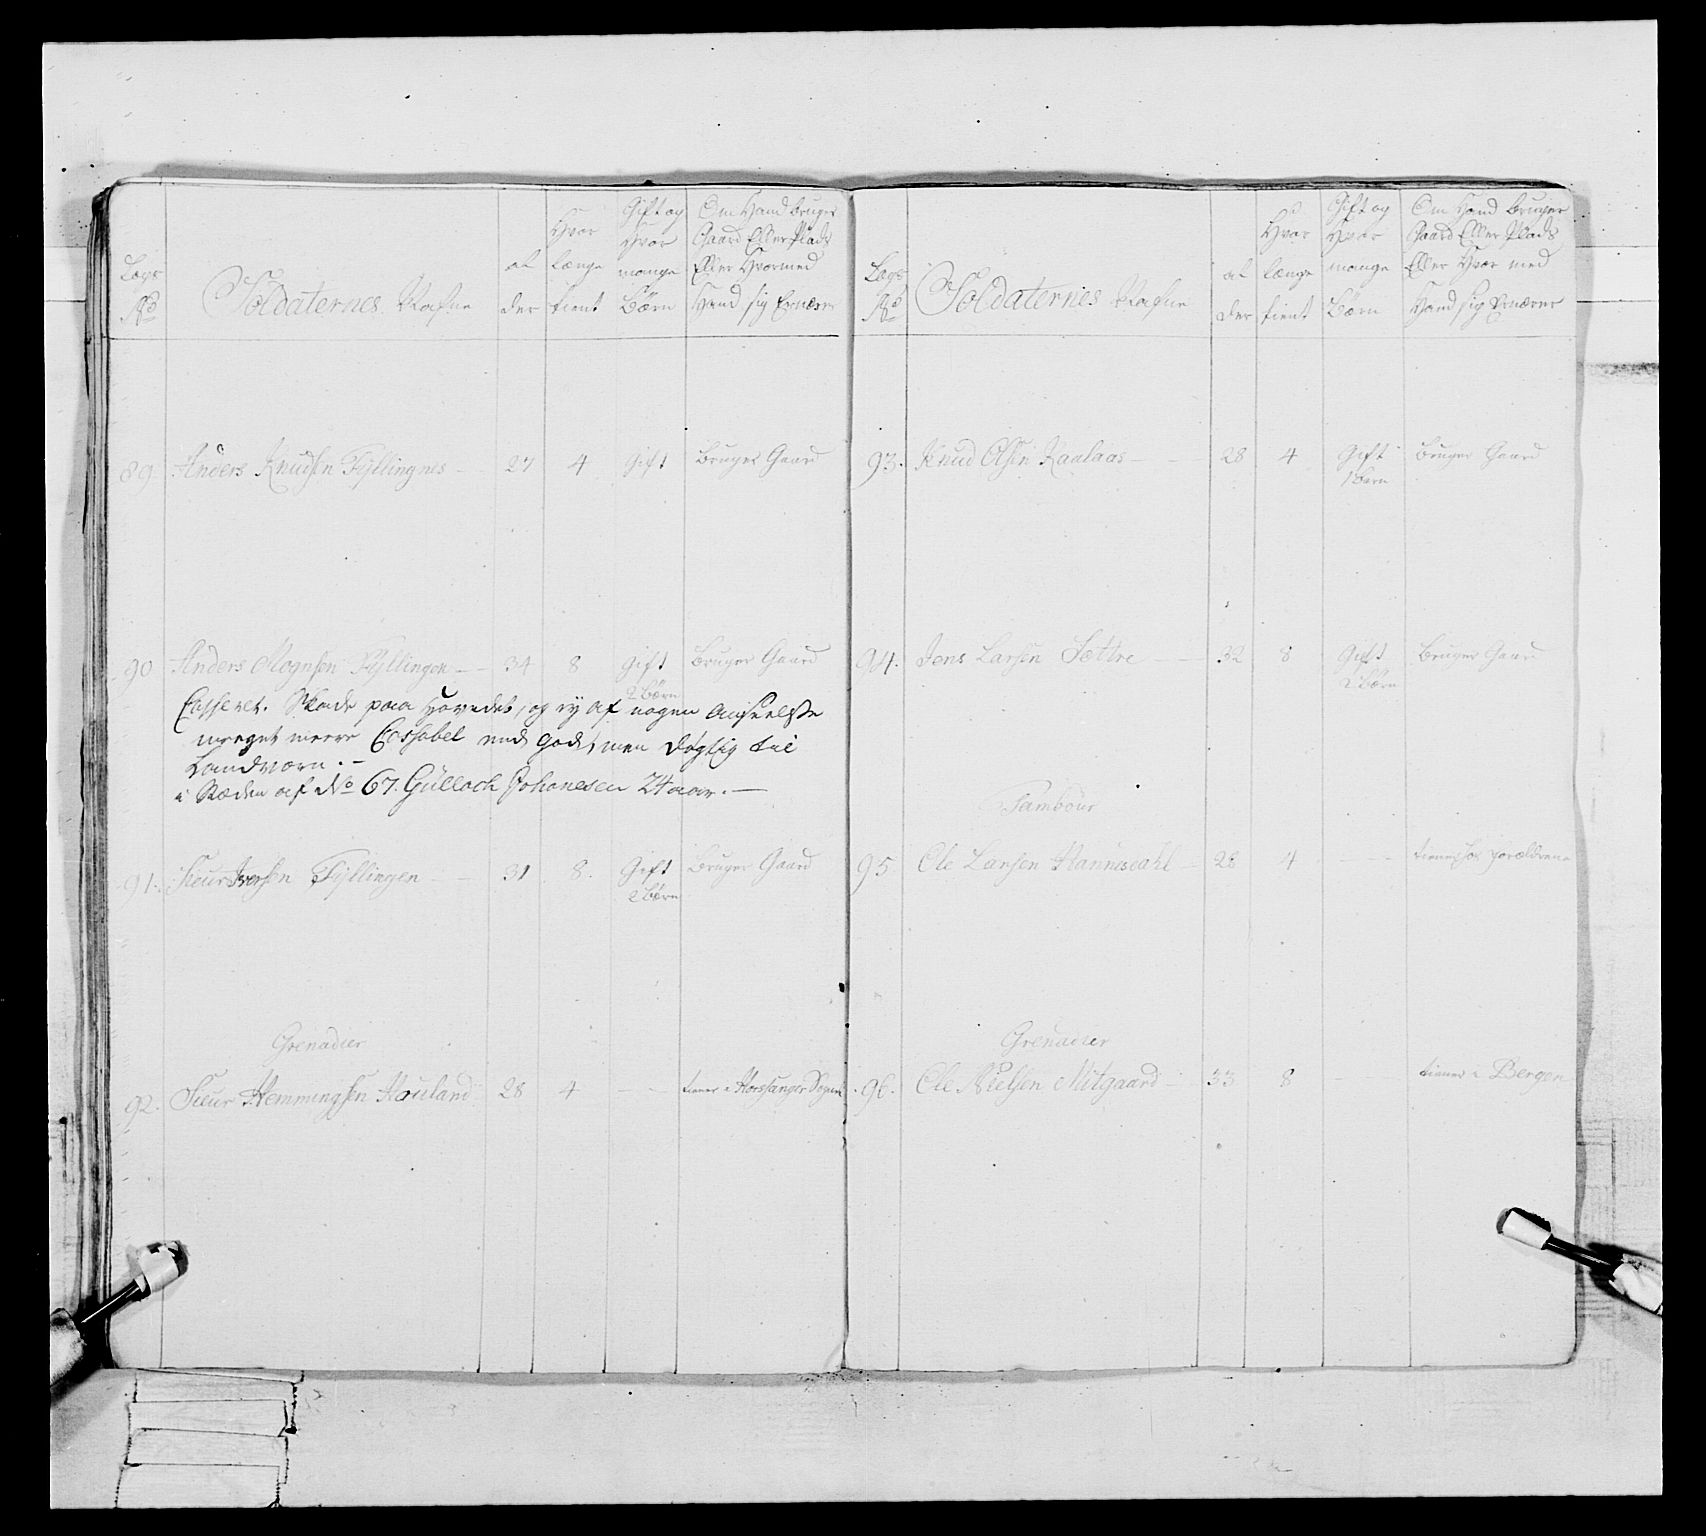 Lægs
No
Soldaternes Nafne
al
der
Hvor
længe
tient
Gift og
Hvor
mange
Børn
Om Hand bruger
Gaard Eller Plads
Eller Hvormed
Hand sig Ernærer
89. Anders Knudsen Fyllingnes — 27 4 Gift Bruger Gaard
90 Anders Mognsen Fyllingen — 34 8 Gift Bruger Gaard
2 Børn
Casseret. Skade paa Hovedet, og ey af nogen Anseelse
meget meere Casabel end god, men dygtig til
Landværn. —
i Stæden af No 67. Gulloch Johanesen 24 aar. —
91. Sieur Iversen Fyllingen — 31 8. Gift Bruger Gaard
2 børn
Grenadier
92. Sieur Hemmingsen Houland 28 4 — tiener i Hossanger Sogn
Lægs
No
Soldaternes Nafne
al
der
Hvor
længe
tient
Gift og
Hvor
mange
Børn
Om Hand bruger
Gaard Eller Plads
Eller Hvor med
Hand sig Ernærer
93. Knud Olsen Kaalaas — 28 4 Gift Bruger Gaard
1 barn
94. Jens Larsen Sættre — 32 8 Gift Bruger Gaard
2 Børn
Tambour
95 Ole Larsen Hannisdahl — 28 4 — tiener hos forældrene
Grenadier
96. Ole Nielsen Mitgaard — 33 8 — tiener i Bergen